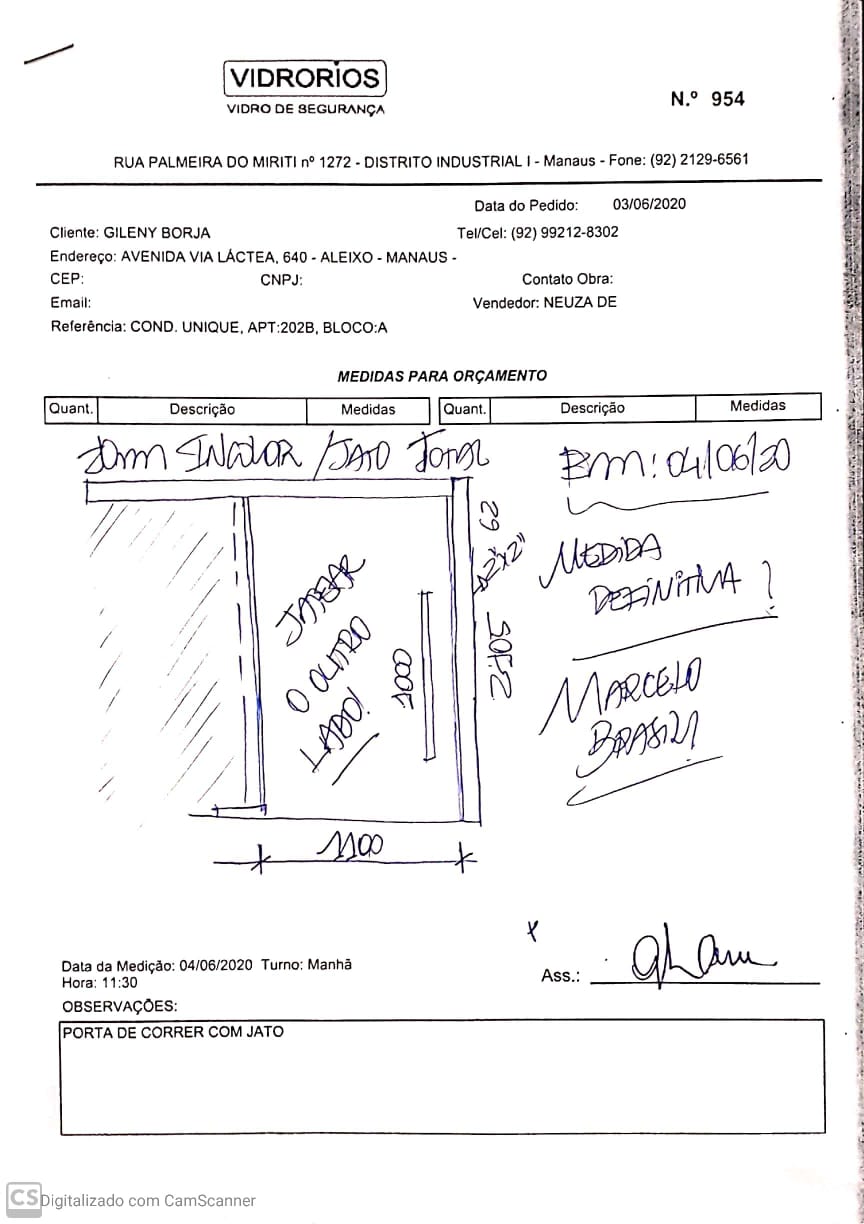 VIDRORIOS
VIDRO DE SEGURANÇA
N.º 954
RUA PALMEIRA DO MIRITI nº 1272 - DISTRITO INDUSTRIAL I - Manaus - Fone: (92) 2129-6561
Data do Pedido: 03/06/2020
Cliente: GILENY BORJA Tel/Cel: (92) 99212-8302
Endereço: AVENIDA VIA LÁCTEA, 640 - ALEIXO - MANAUS -
CEP: CNPJ: Contato Obra:
Email: Vendedor: NEUZA DE
Referência: COND. UNIQUE, APT:202B, BLOCO:A
MEDIDAS PARA ORÇAMENTO
Quant. Descrição Medidas Quant. Descrição Medidas
INCOLOR / JATO TOTAL
BM: 04/06/20
62
2"x2"
MEDIDA
DEFINITIVA
JATEAR
O OUTRO
LADO!
1000
MARCELO
BRASIL
1100
Data da Medição: 04/06/2020 Turno: Manhã
Hora: 11:30
Ass.:
OBSERVAÇÕES:
PORTA DE CORRER COM JATO
CS Digitalizado com CamScanner